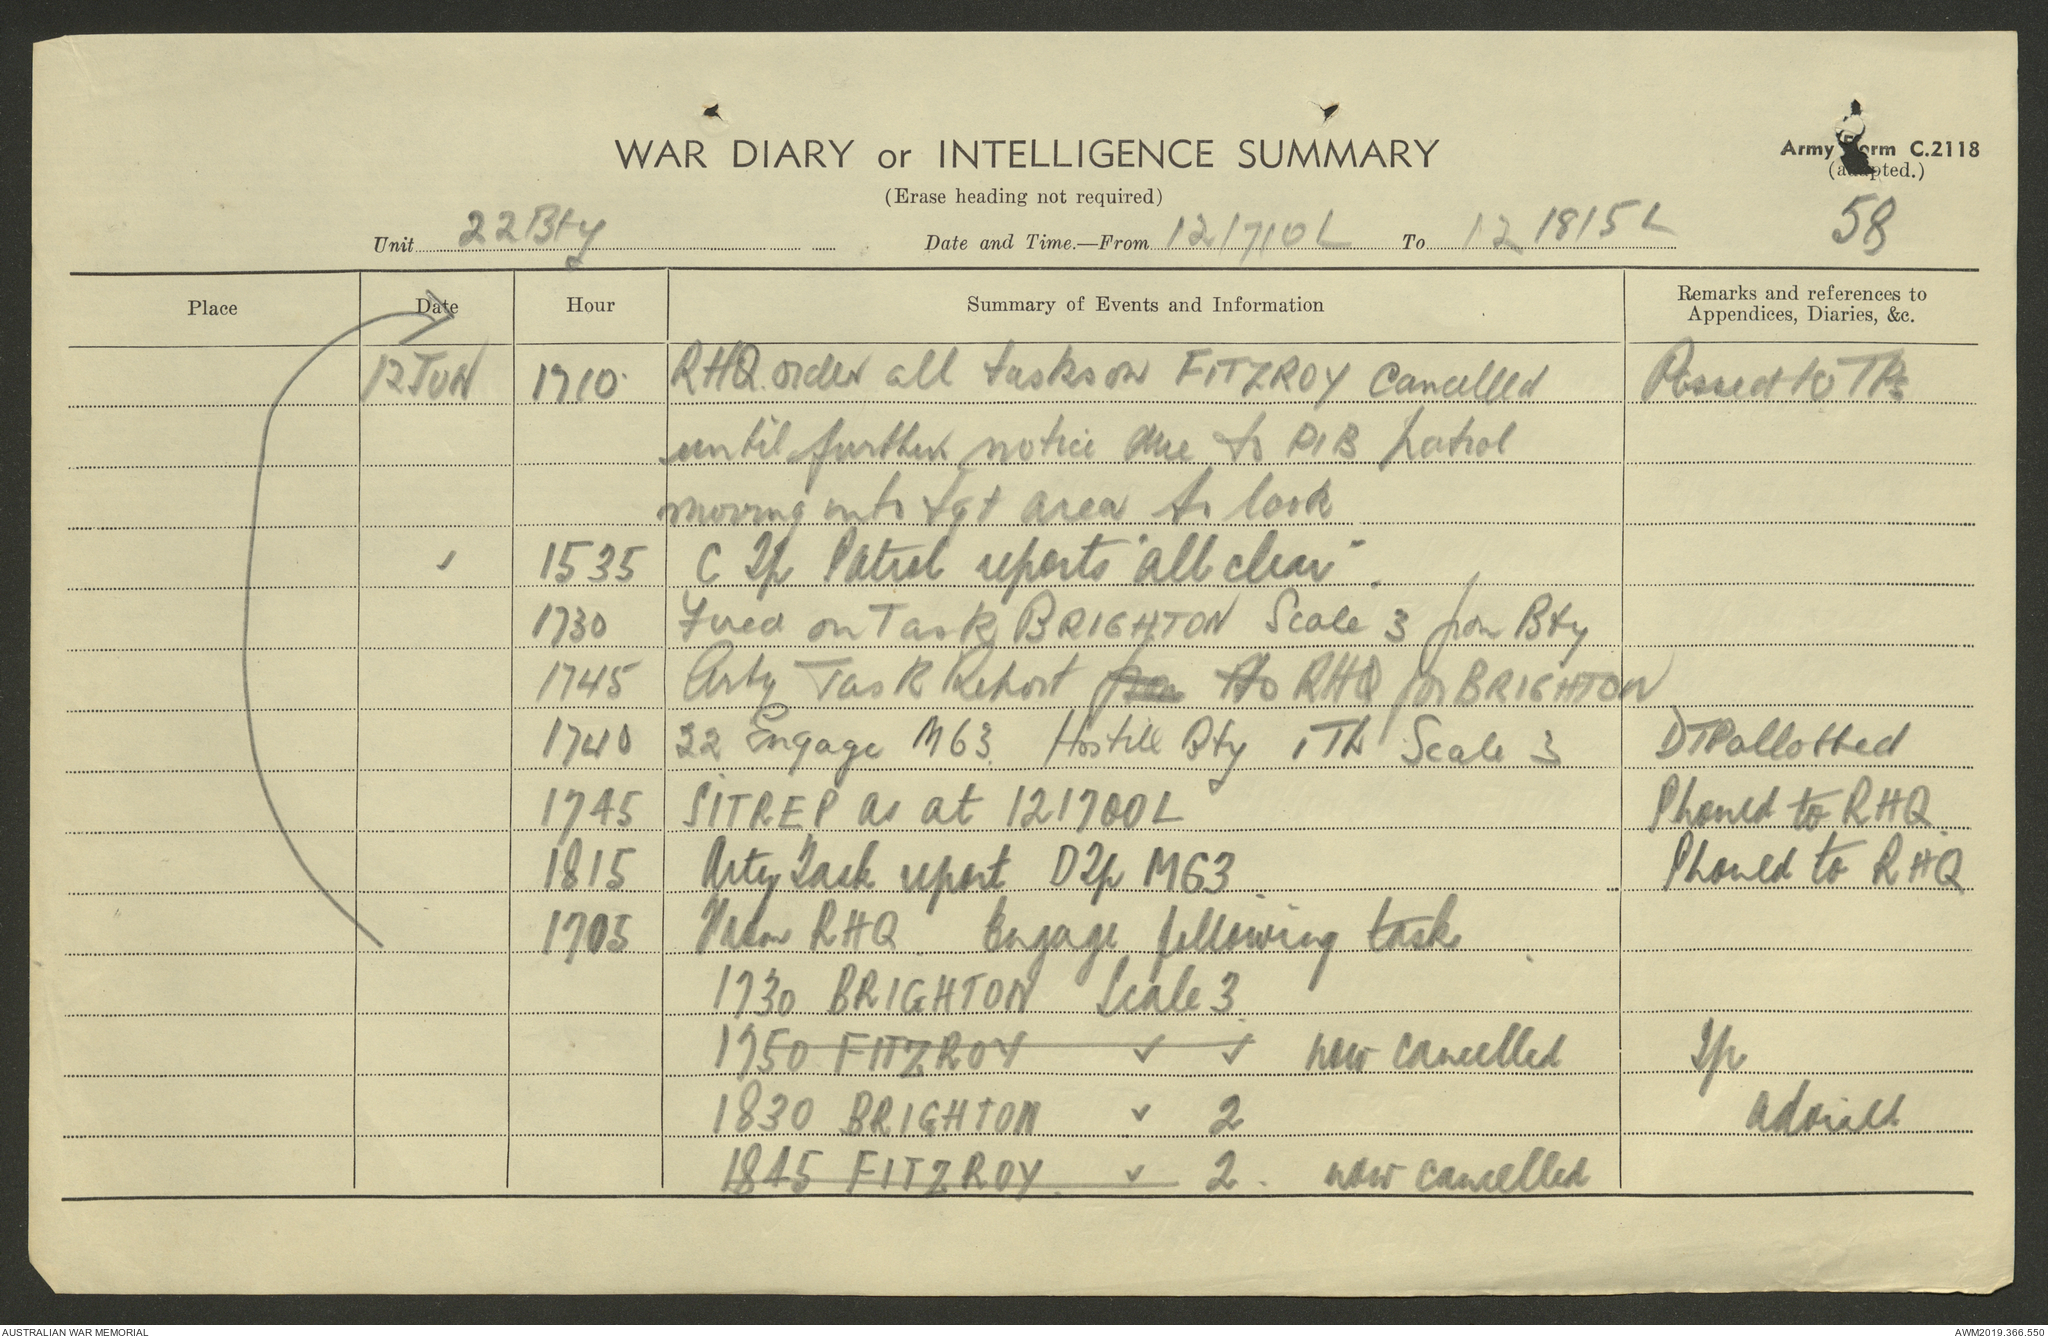 WAR DIARY or INTELLIGENCE SUMMARY
(Erase heading not required)
Army Form C.2118
(adapted.)
58
Unit 22 Bty Date and Time.—From 121710L To 12 1815L
Place Date Hour Summary of Events and Information Remarks and references to Appendices, Diaries, &c.
12 JUN 1710 RHQ order all tasks on FITZROY cancelled Passed to TPs
until further notice due to RIB patrol
moving into tgt area to look
1535 C Tp Patrol reports "all clear".
1730 Fired on Task BRIGHTON Scale 3 from Bty
1745 Arty Task Report to RHQ for BRIGHTON
1740 22 Engage M63 Hostile Bty 1 TP Scale 3 DTP allotted
1745 SITREP as at 121700L Phoned to RHQ
1815 Arty Task report D Tp M63 Phoned to RHQ
1705 From RHQ Engage following task
1730 BRIGHTON Scale 3
1750 FITZROY ✓ ✓ now cancelled Tp
1830 BRIGHTON ✓ 2 advised
1845 FITZROY ✓ 2. now cancelled
AUSTRALIAN WAR MEMORIAL AWM2019.366.550